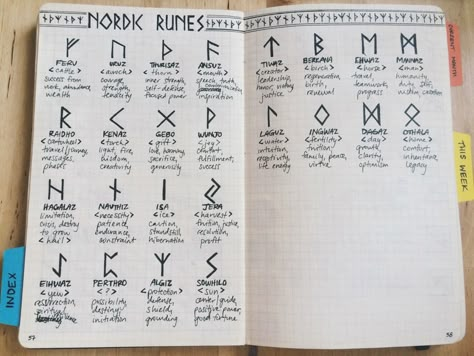 NORDIC RUNES
FEHU
<cattle>
success from
work, abundance,
wealth
URUZ
<auroch>
courage,
strength,
tenacity
THURISAZ
<thorn>
inner strength,
self-defense,
focused power
ANSUZ
<mouth>
speech, truth,
communication,
inspiration
RAIDHO
travel/journey,
messages,
phases
KENAZ
<torch>
light, fire,
wisdom,
creativity
GEBO
<gift>
love, harmony,
sacrifice,
generosity
WUNJO
<joy>
comfort,
fulfillment,
success
HAGALAZ
limitation,
crisis, destiny
to grow
<hail>
NAUTHIZ
<necessity>
patience,
endurance,
constraint
ISA
<ice>
caution,
standstill,
hibernation
JERA
<harvest>
fruition, justice,
resolution,
profit
EIHWAZ
<yew>
resurrection,
spiritual
PERTHRO
<?>
possibility,
destiny,
initiation
ALGIZ
<protection>
defense,
shield,
grounding
SOWHILO
<sun>
center/guide,
positive power,
good fortune
57
TIWAZ
<creator>
leadership,
honor, victory,
justice
BERKANA
<birch>
regeneration,
birth,
renewal
EHWAZ
<horse>
travel,
teamwork,
progress
MANNAZ
<man>
humanity,
duty, self,
LAGUZ
<water>
intuition,
receptivity,
life energy
INGWAZ
<fertility>
fruition,
family, peace,
virtue
DAGAZ
<day>
growth,
clarity,
optimism
OTHALA
<home>
comfort,
inheritance,
legacy
58
INDEX
CURRENT MONTH
THIS WEEK